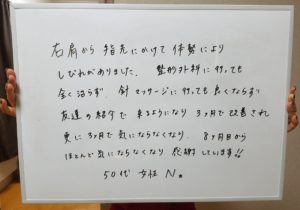 右肩から 指先にかけて 体勢により
しびれがありました。 整形外科に行っても
全く治らず、針 マッサージに行っても良くならず、
友達の紹介で 来るようになり 3ヶ月で改善され
更に3ヶ月で気にならなくなり、 8ヶ月目から
ほとんど気にならなくなり 感謝しています!!
50代 女性 N.